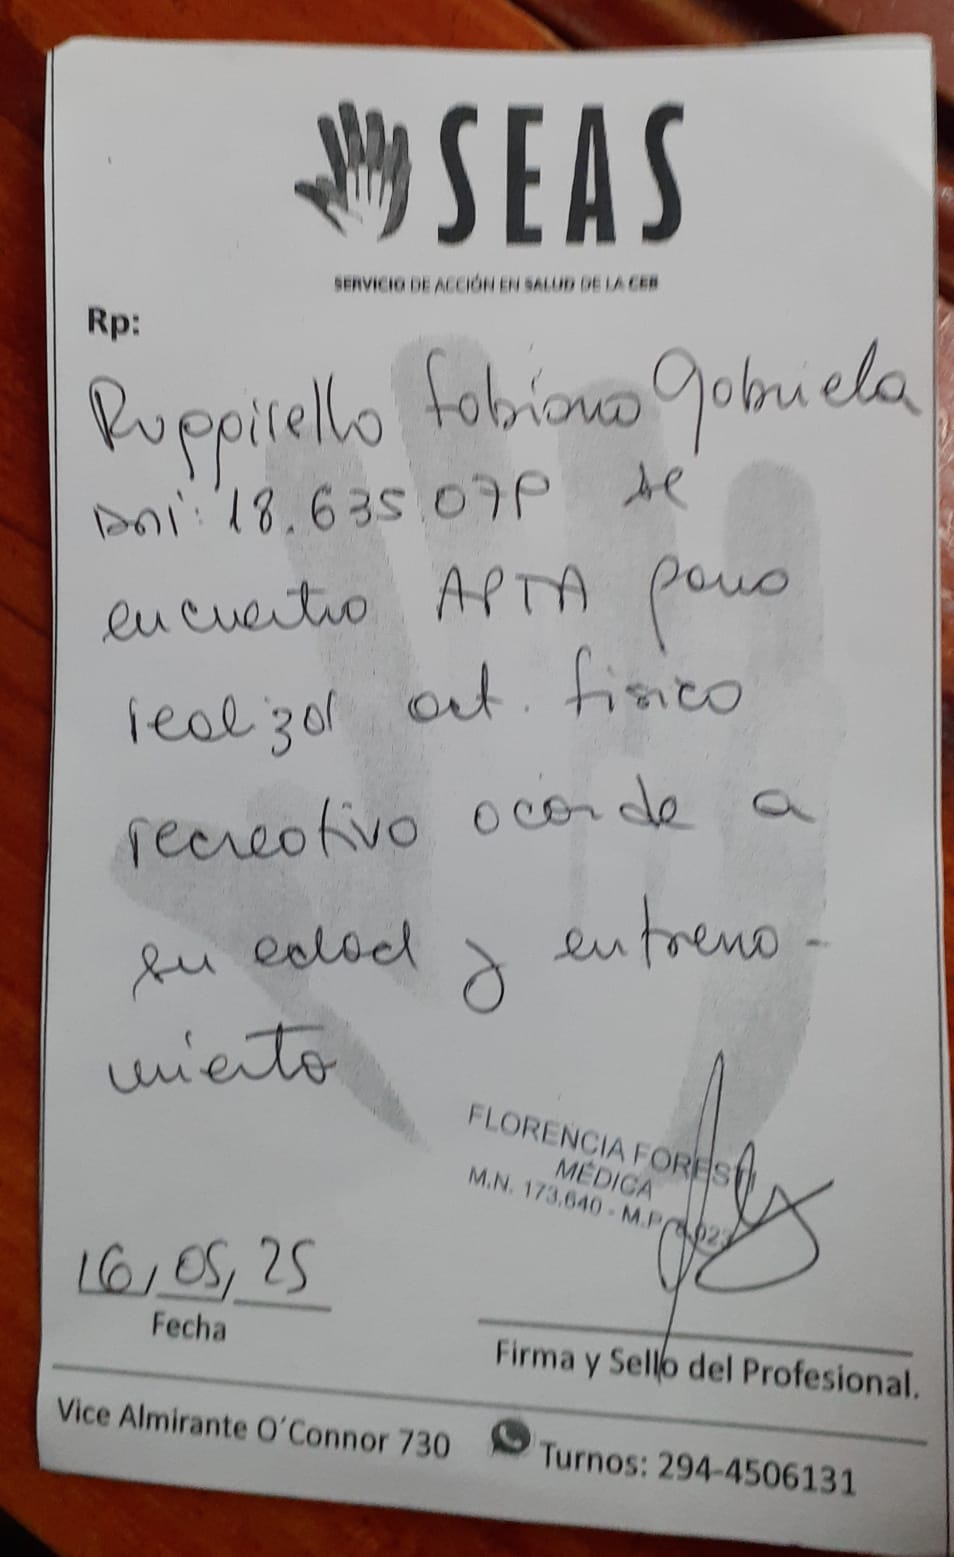 SEAS
SERVICIO DE ACCIÓN EN SALUD DE LA CEB
Rp:
Ruppirello Fabiana Gabriela
DNI: 18.635.079 se
encuentra APTA para
realizar act. física
recreativa acorde a
su edad y entrena-
miento
FLORENCIA FORESTI
MÉDICA
M.N. 173.640 - M.P.
16, 05, 25
Fecha
Firma y Sello del Profesional.
Vice Almirante O´Connor 730 Turnos: 294-4506131